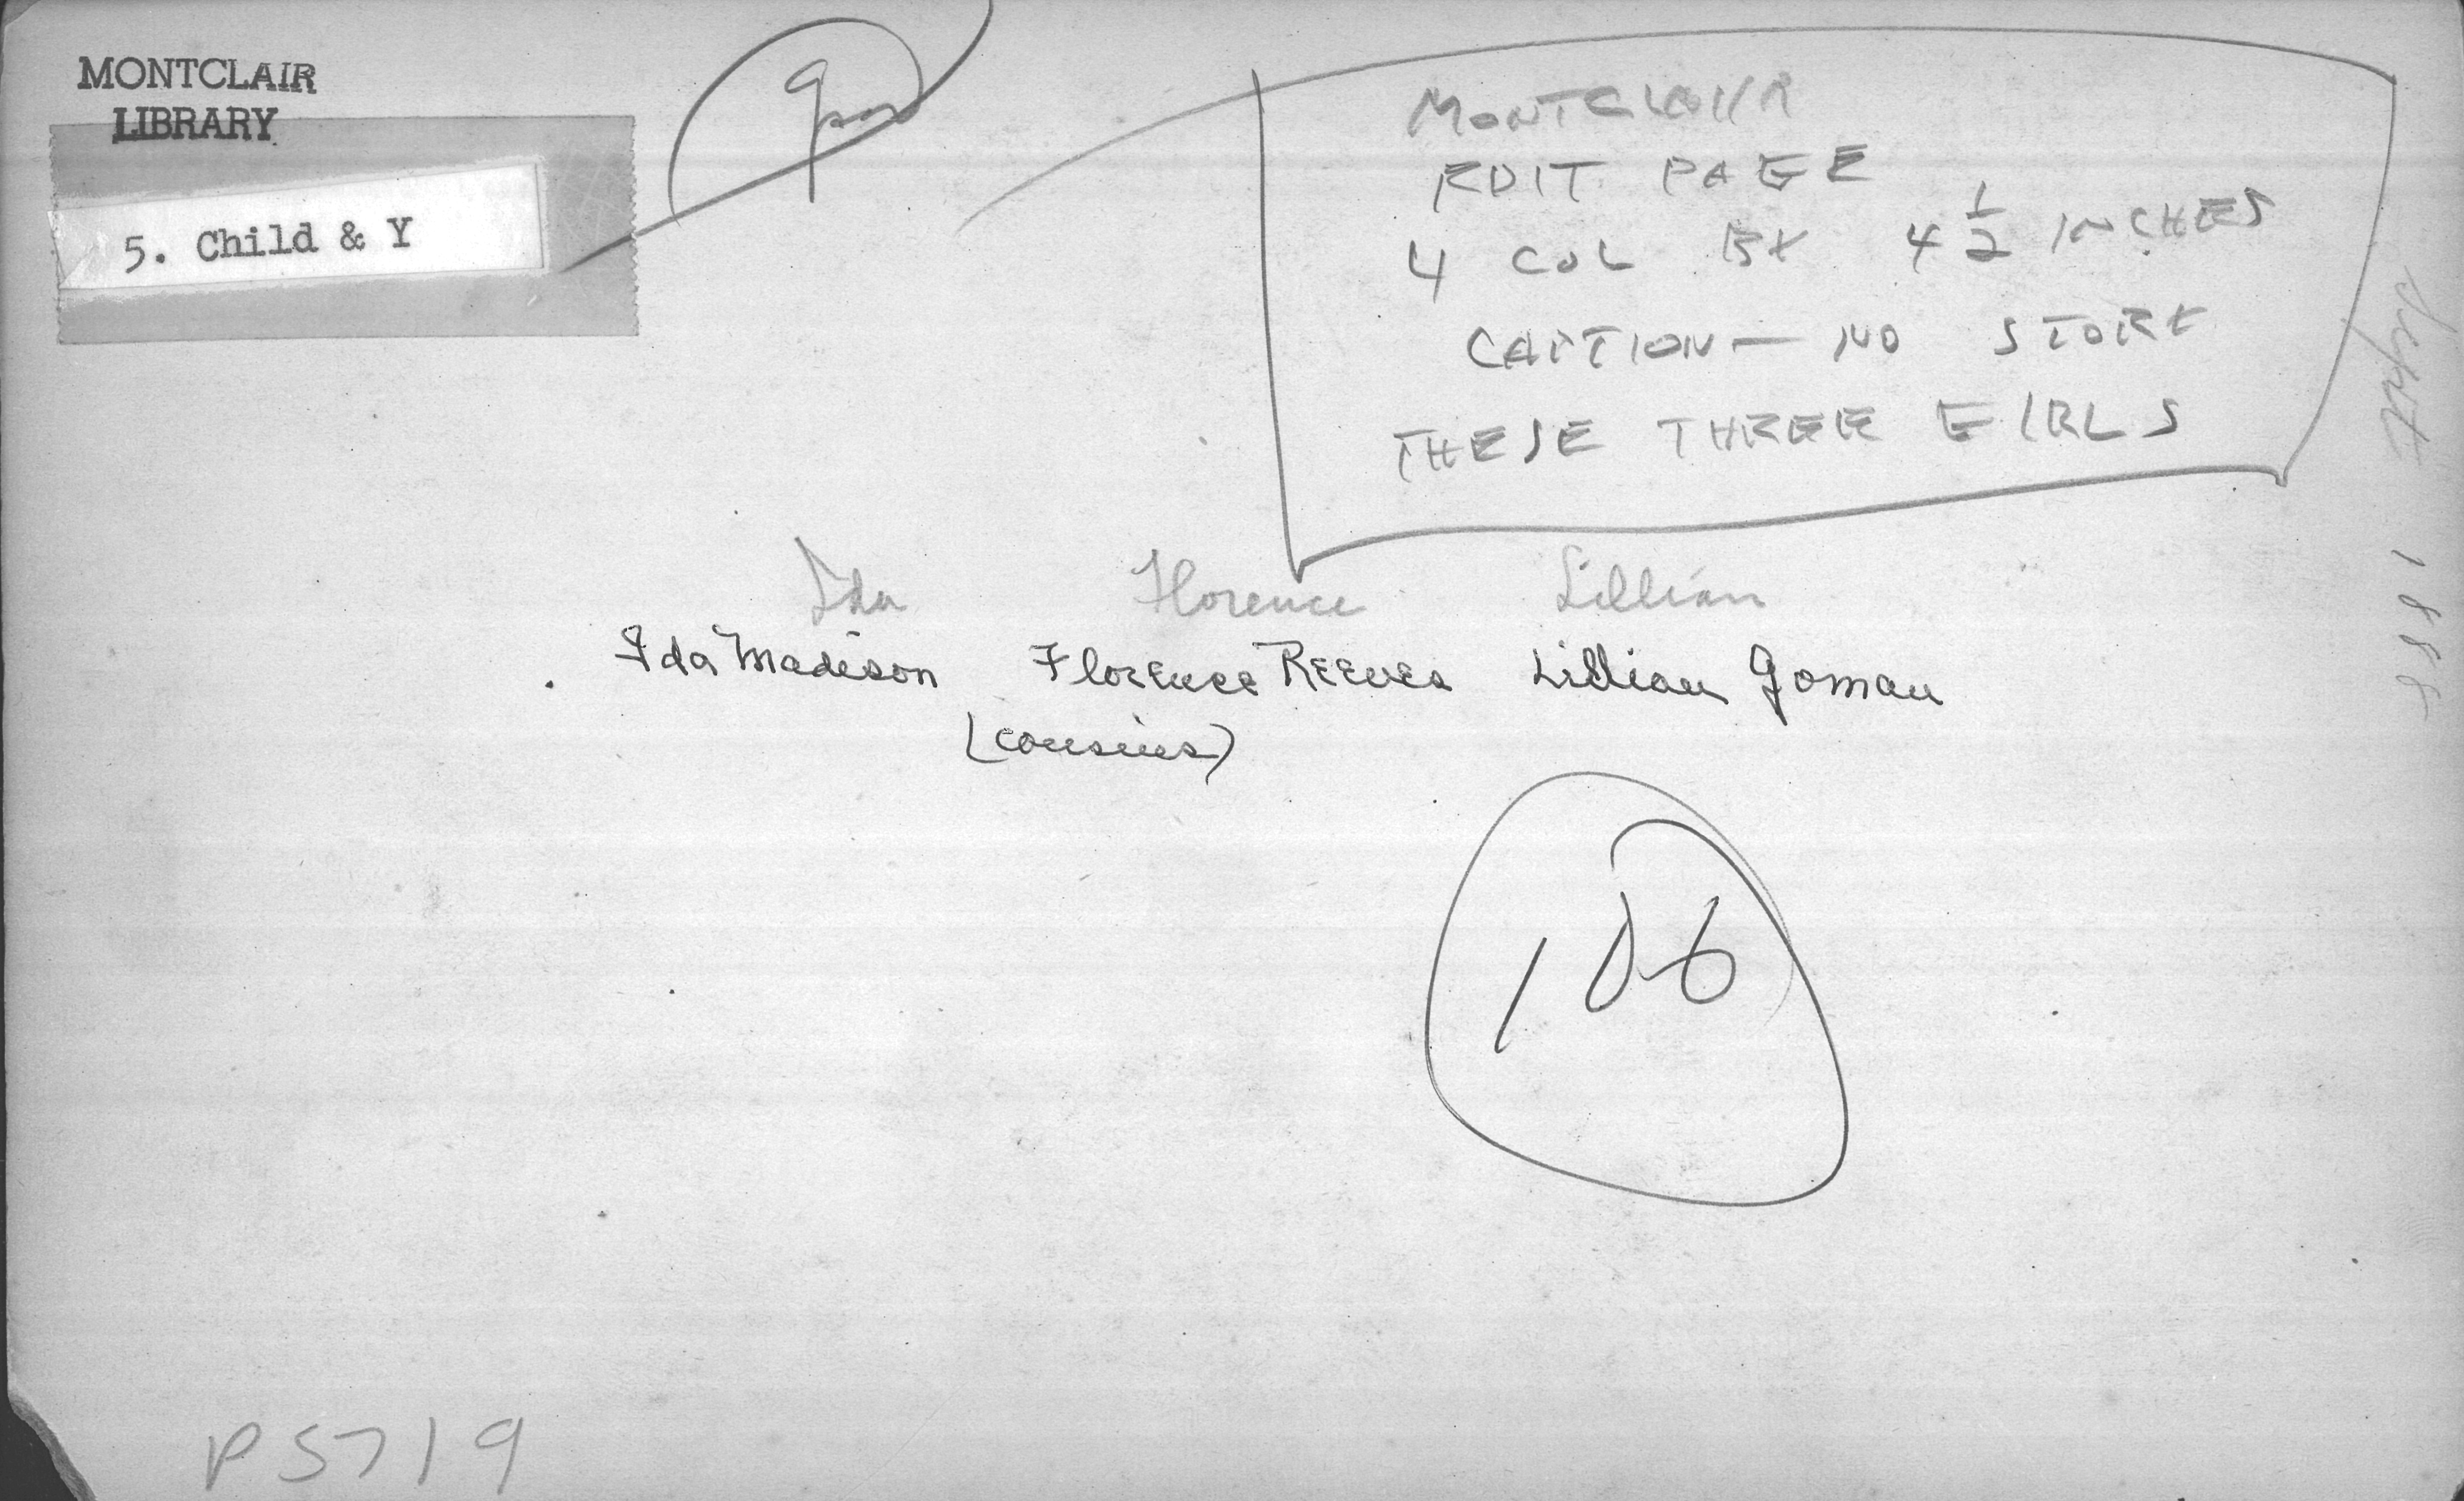 MONTCLAIR
LIBRARY
5. Child & Y
MONTCLAIR
EDIT PAGE
4 COL BY 4 1/2 INCHES
CAPTION — NO STORY
THESE THREE GIRLS
Sept 1888
Ida Florence Lillian
Ida Madison Florence Reeves Lillian Goman
(cousins)
106
P5719